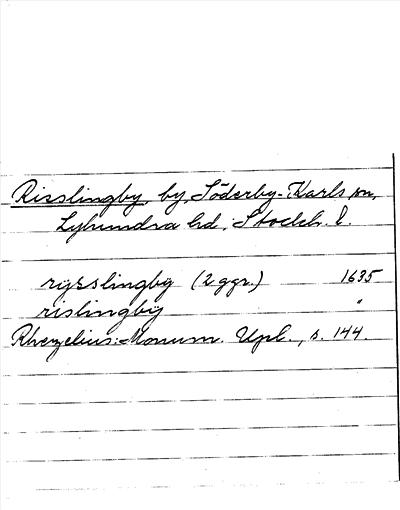 Risslingby, by, Söderby-Karls sn,
Lyhundra hd, Stockh. l.
rysslingby (2 ggr.) 1635
rislingby "
Rhezelius: Monum. Upl., s. 144.